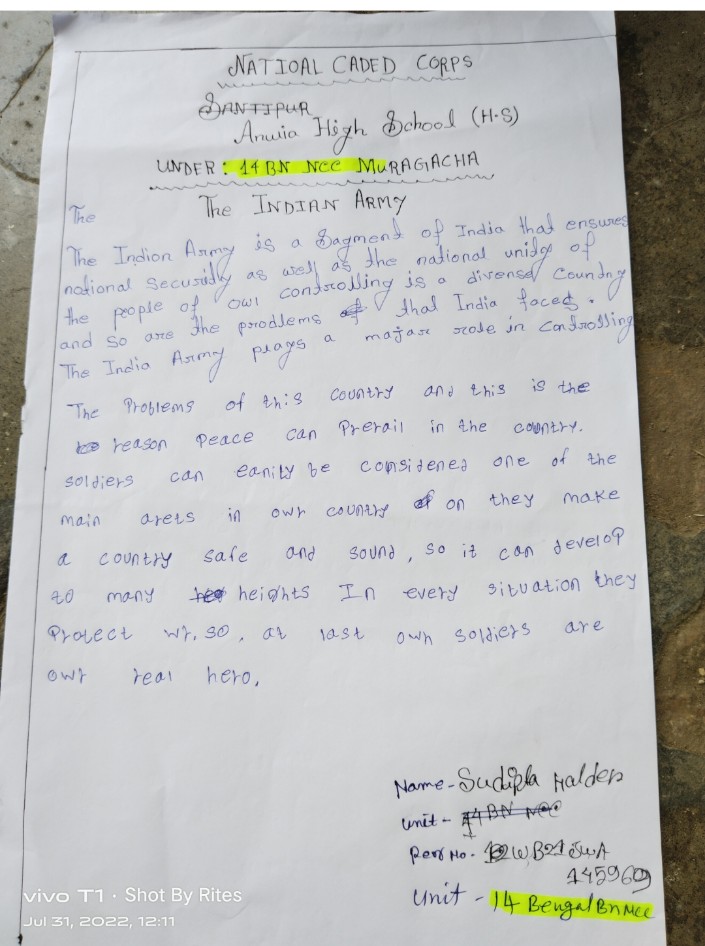 NATIOAL CADED CORPS
SANTIPUR
High School (H·S)
UNDER: 14 BN NCC MURAGACHA
The INDIAN ARMY
The
The Indion Army is a Sagment of India that ensures
national Security as well as the national unity of
the people of owr controlling is a diversed Country
and so are the problems of that India faces.
The India Army plays a majar role in controlling
The Problems of this country and this is the
reason Peace can Prevail in the country.
soldiers can eanily be considered one of the
main arets in owr country on they make
a country safe and sound, so it can develop
to many heights In every situation they
Protect wr. so, at last own soldiers are
owr real hero.
Name - Sudipta Halder
unit - 14 BN NCC
No. WB21SWA
145969
Unit - 14 Bengal Bn Ncc
vivo T1 · Shot By Rites
Jul 31, 2022, 12:11